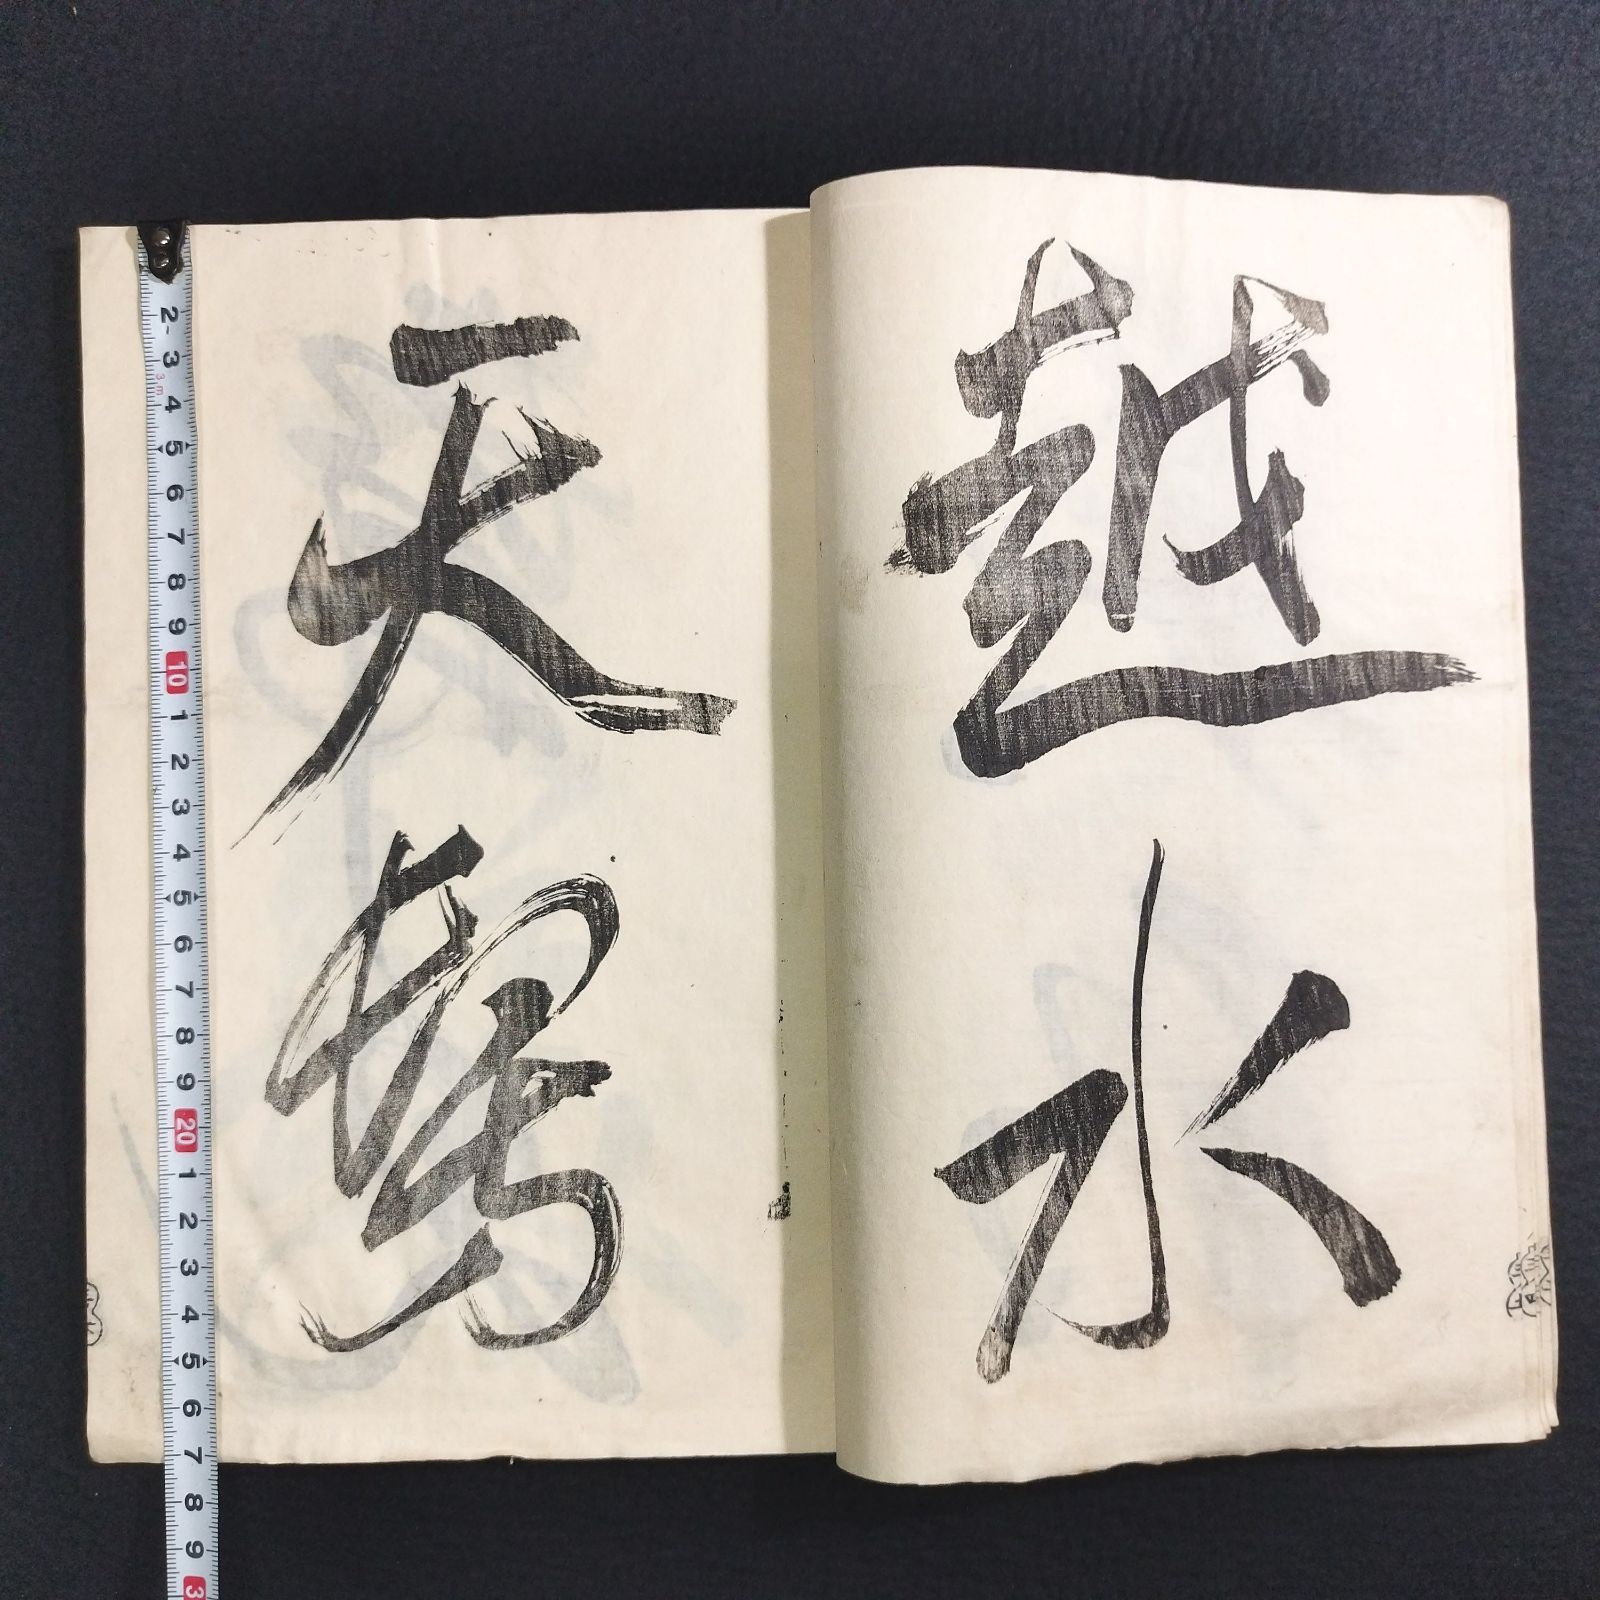 越水
天
2 3 4 5 6 7 8 9 10 1 2 3 4 5 6 7 8 9 20 1 2 3 4 5 6 7 8 9 3
3m